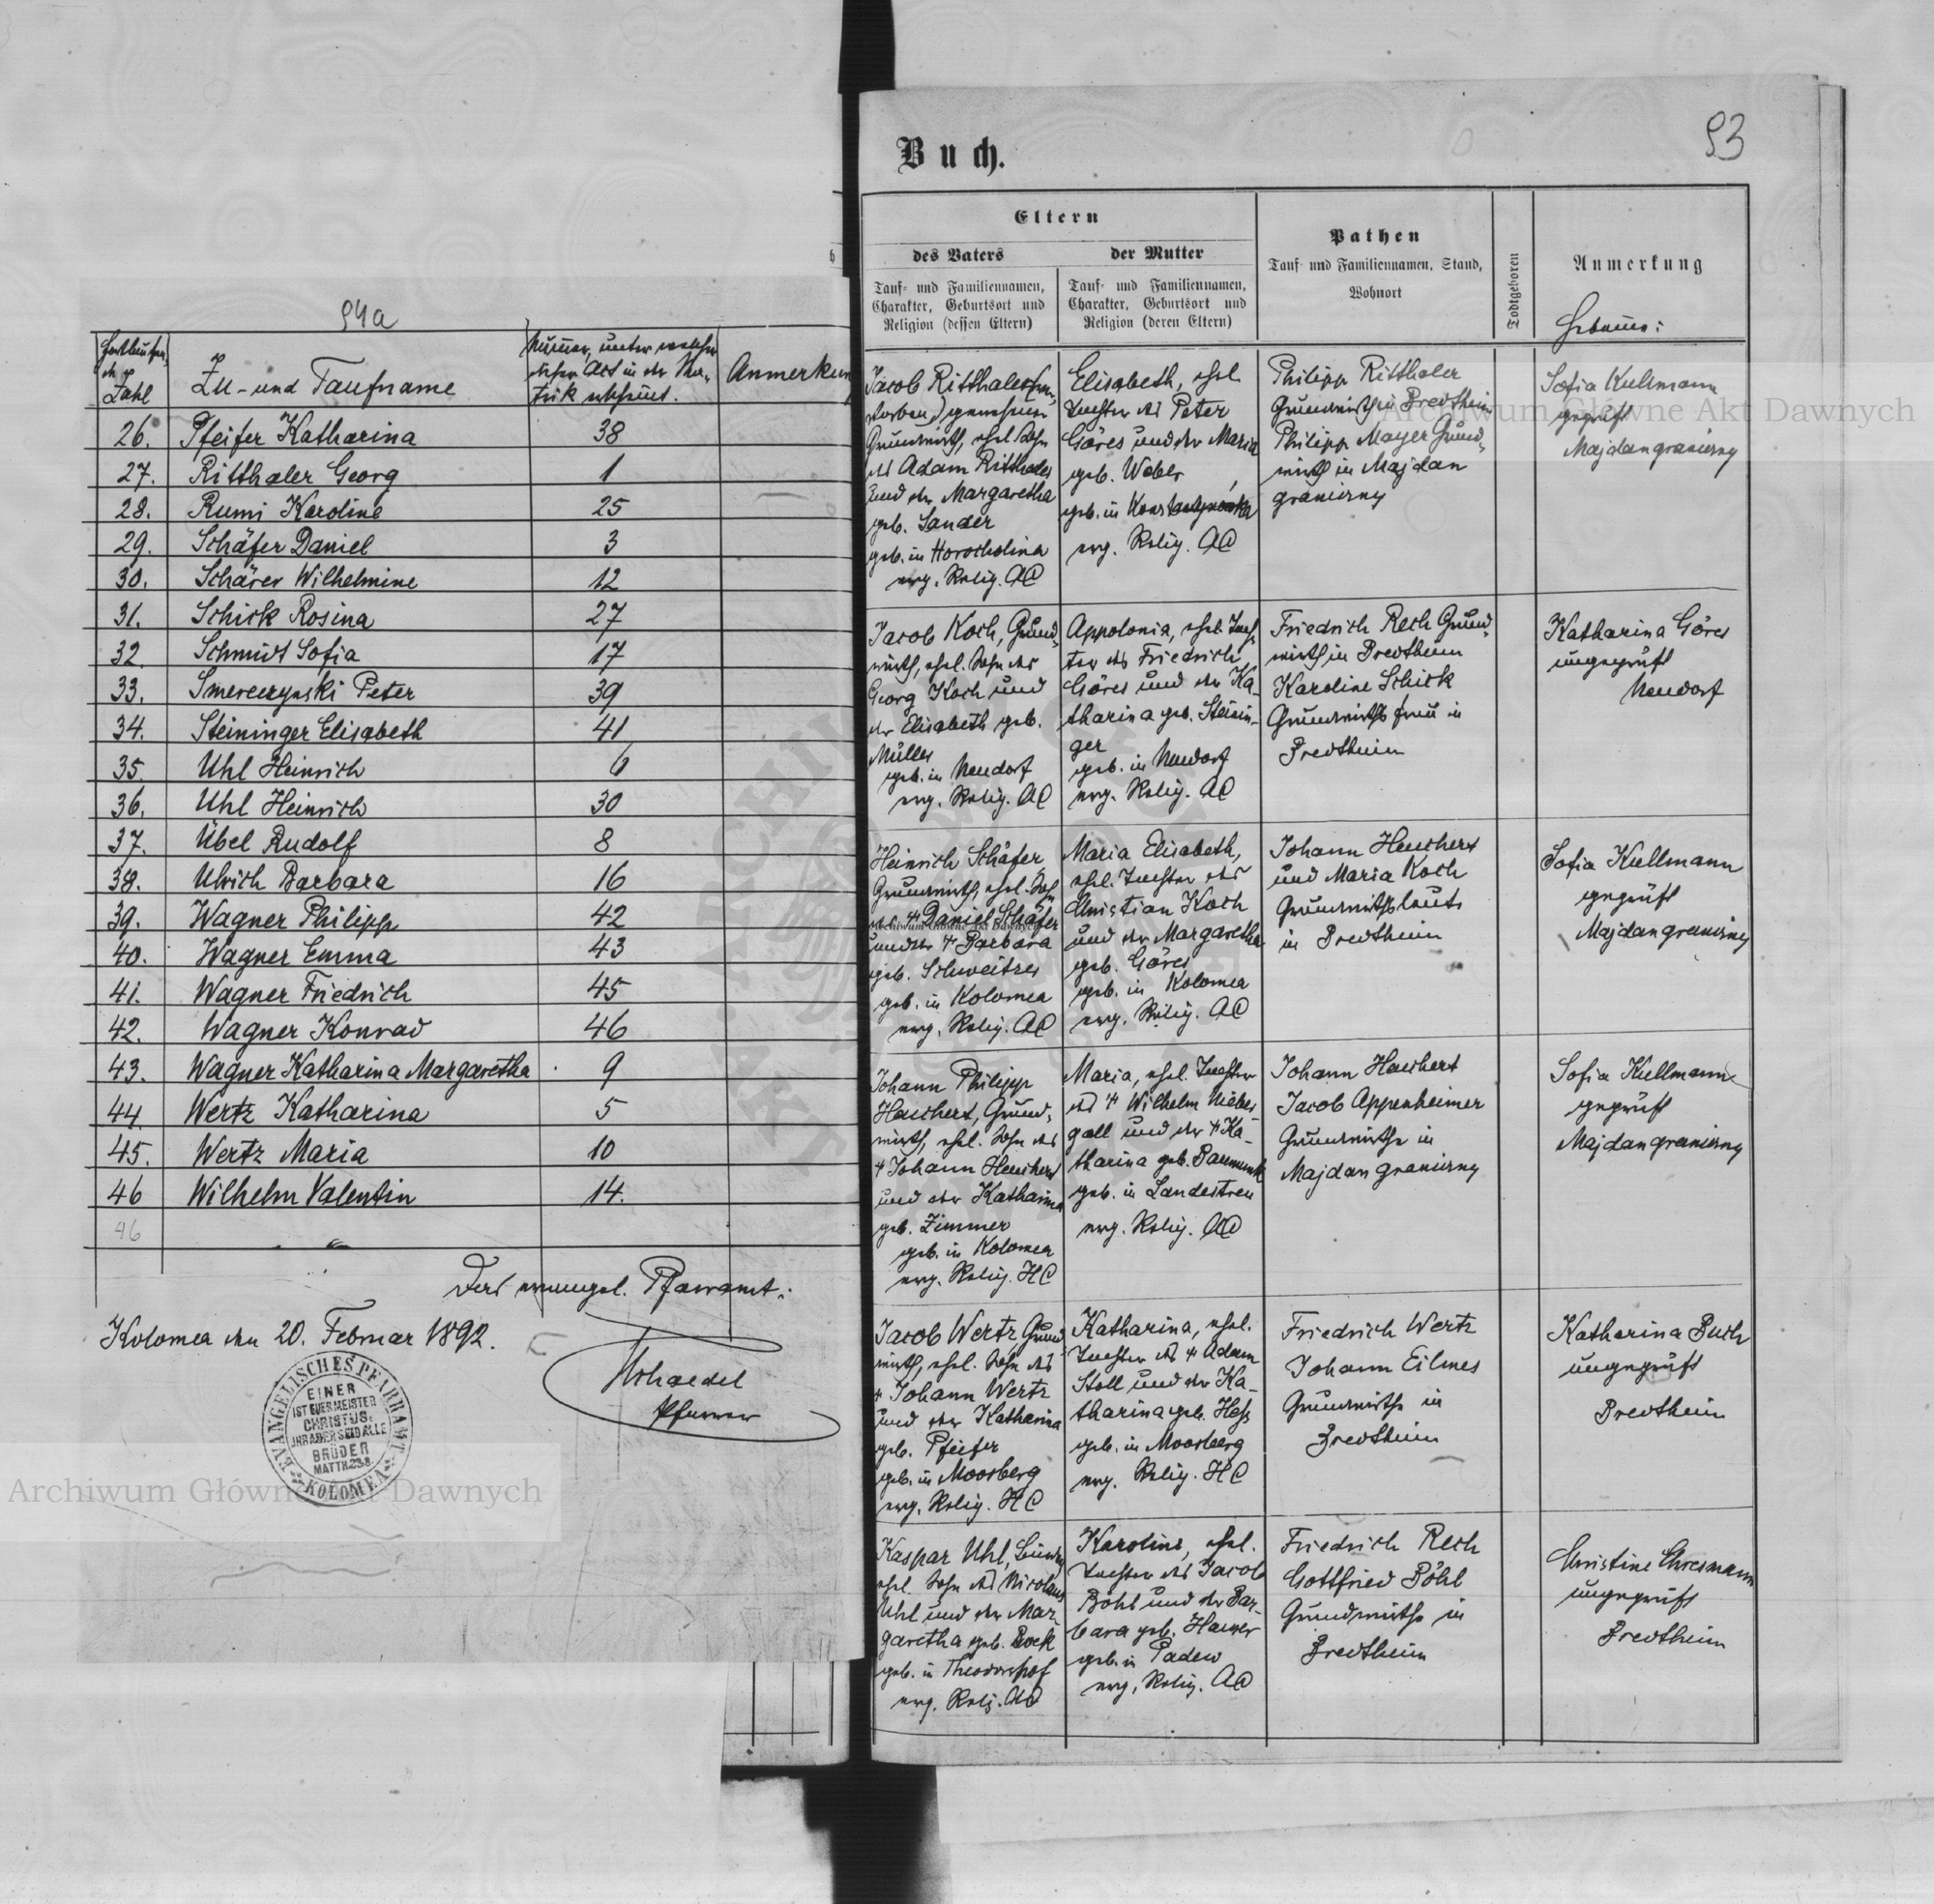 94a
Fortlaufen-
de
Zahl
Zu- und Taufname
Nummer, unter welcher
dieser Act in der Ma-
trik erscheint.
Anmerkung
26. Pfeifer Katharina 38
27. Ritthaler Georg 1
28. Rumi Karoline 25
29. Schäfer Daniel 3
30. Schärer Wilhelmine 12
31. Schick Rosina 27
32. Schmidt Sofia 17
33. Smereczynski Peter 39
34. Steininger Elisabeth 41
35. Uhl Heinrich 6
36. Uhl Heinrich 30
37. Übel Rudolf 8
38. Ulrich Barbara 16
39. Wagner Philipp 42
40. Wagner Emma 43
41. Wagner Friedrich 45
42. Wagner Konrad 46
43. Wagner Katharina Margaretha 9
44. Wertz Katharina 5
45. Wertz Maria 10
46 Wilhelm Valentin 14.
46
Das evangel. Pfarramt:
Kolomea den 20. Februar 1892.
Pfarrer
EVANGELISCHES PFARRAMT
KOLOMEA
EINER
IST EUER MEISTER
CHRISTUS.
IHR ABER SEID ALLE
BRÜDER
MATTH. 23.8.
93
Buch.
Eltern
des Vaters
Tauf- und Familiennamen,
Charakter, Geburtsort und
Religion (dessen Eltern)
der Mutter
Tauf- und Familiennamen,
Charakter, Geburtsort und
Religion (deren Eltern)
Pathen
Tauf- und Familiennamen, Stand,
Wohnort
Todtgeboren
Anmerkung
Hebamme:
Jacob Ritthaler (ver-
storben) gewesener
Grundwirth, ehel. Sohn
des Adam Ritthaler
und der Margaretha
geb. Sander
geb. in Horocholina
evg. Relig. AC
Elisabeth, ehel.
Tochter des Peter
Göres und der Maria
geb. Weber
geb. in Konstantynówka
evg. Relig. AC
Philipp Ritthaler
Grundwirth in Bredtheim
Philipp Mayer Grund-
wirth in Majdan
graniczny
Sofia Kullmann
geprüft
Majdan graniczny
Jacob Koch, Grund-
wirth, ehel. Sohn des
Georg Koch und
der Elisabeth geb.
Müller
geb. in Neudorf
evg. Relig. AC
Appolonia, ehel. Toch-
ter des Friedrich
Göres und der Ka-
tharina geb. Steinin-
ger
geb. in Neudorf
evg. Relig. AC
Friedrich Rech Grund-
wirth in Bredtheim
Karoline Schick
Grundwirths frau in
Bredtheim
Katharina Göres
ungeprüft
Neudorf
Heinrich Schäfer
Grundwirth, ehel. Sohn
des † Daniel Schäfer
und der † Barbara
geb. Schweitzer
geb. in Kolomea
evg. Relig. AC
Maria Elisabeth,
ehel. Tochter des
Christian Koch
und der Margaretha
geb. Göres
geb. in Kolomea
evg. Relig. AC
Johann Heuchert
und Maria Koch
Grundwirthsleute
in Bredtheim
Sofia Kullmann
geprüft
Majdan graniczny
Johann Philipp
Heuchert, Grund-
wirth, ehel. Sohn des
† Johann Heuchert
und der Katharina
geb. Zimmer
geb. in Kolomea
evg. Relig. HC
Maria, ehel. Tochter
des † Wilhelm Nieber-
gall und der † Ka-
tharina geb.
geb. in Landestreu
evg. Relig. AC
Johann Heuchert
Jacob Appenheimer
Grundwirthe in
Majdan graniczny
Sofia Kullmann
geprüft
Majdan graniczny
Jacob Wertz Grund-
wirth, ehel. Sohn des
† Johann Wertz
und der Katharina
geb. Pfeifer
geb. in Moosberg
evg. Relig. HC
Katharina, ehel.
Tochter des † Adam
Stoll und der Ka-
tharina geb. Heß
geb. in Moosberg
evg. Relig. HC
Friedrich Wertz
Johann Eilmes
Grundwirthe in
Bredtheim
Katharina Buch
ungeprüft
Bredtheim
Kaspar Uhl,
ehel. Sohn des Nicolaus
Uhl und der Mar-
garetha geb. Bock
geb. in Theodorshof
evg. Relig. AC
Karoline, ehel.
Tochter des Jacob
Böhl und der Bar-
bara geb. Hawer
geb. in Padew
evg. Relig. AC
Friedrich Rech
Gottfried Böhl
Grundwirthe in
Bredtheim
Christine Chresmann
ungeprüft
Bredtheim
Archiwum Główne Akt Dawnych
Archiwum Główne Akt Dawnych